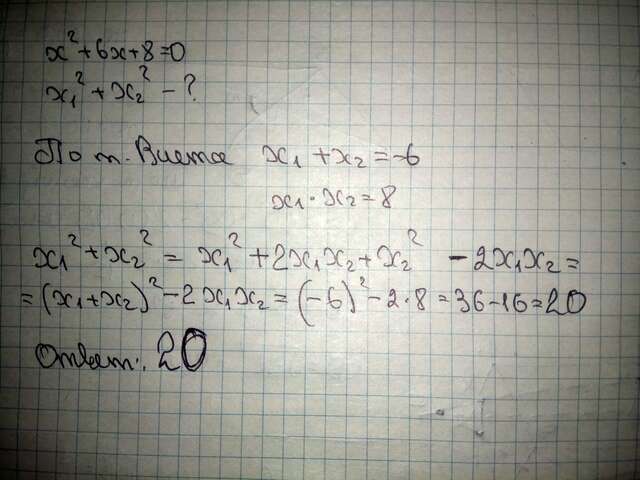 x²+6x+8=0
x₁²+x₂² - ?
По т. Виета x₁+x₂=-6
x₁·x₂=8
x₁²+x₂² = x₁²+2x₁x₂+x₂² -2x₁x₂=
=(x₁+x₂)²-2x₁x₂=(-6)²-2·8=36-16=20
Ответ: 20